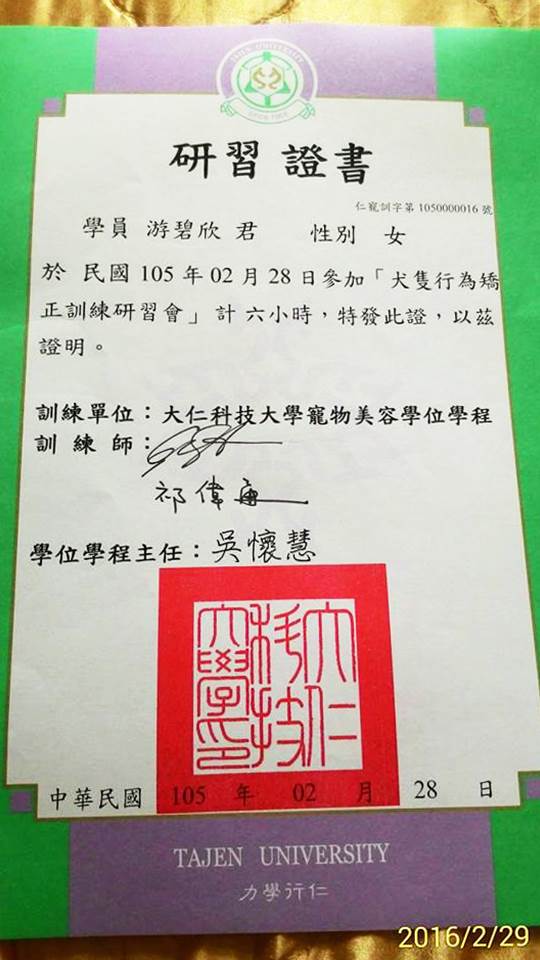 TAJEN UNIVERSITY
研習 證書
仁寵訓字第1050000016號
學員 游碧欣 君 性別 女
於 民國 105 年 02 月 28 日參加「犬隻行為矯
正訓練研習會」計 六小時，特發此證，以茲
證明。
訓練單位：大仁科技大學寵物美容學位學程
訓練師：
祁偉
學位學程主任：吳懷慧
大仁科技大學印
中華民國 105 年 02 月 28 日
TAJEN UNIVERSITY
力學行仁
2016/2/29